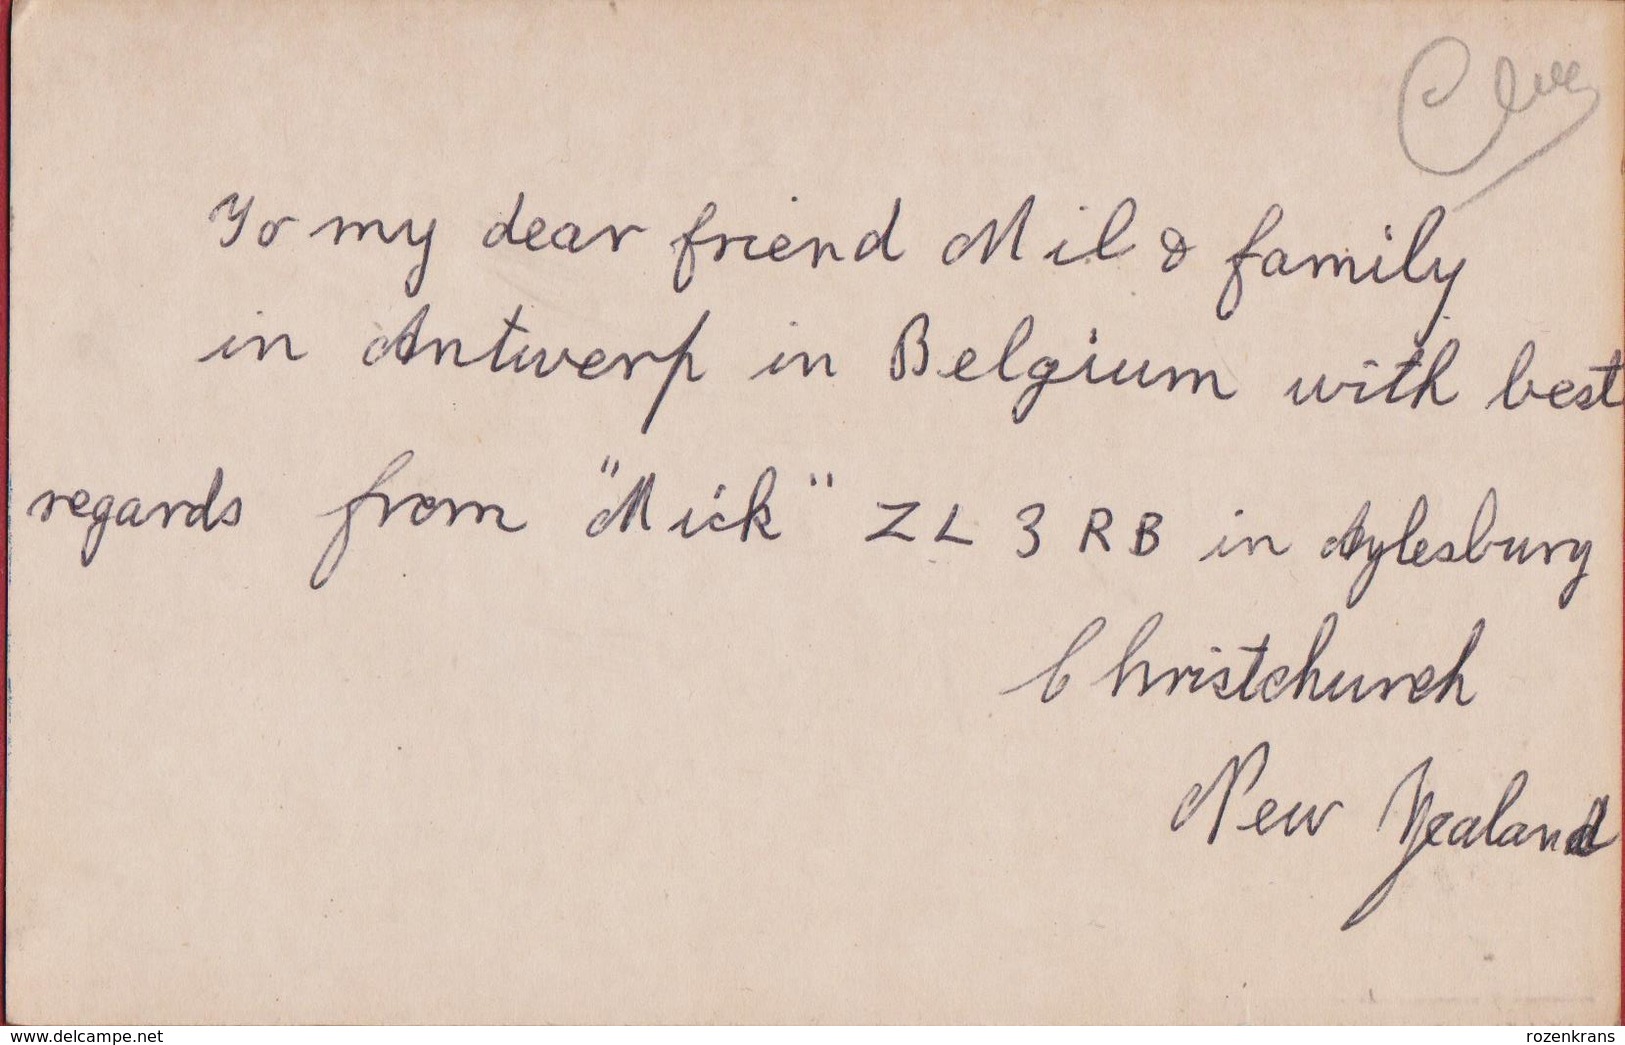 To my dear friend Mil & family
in Antwerp in Belgium with best
regards from "Mick" ZL3RB in Aylesbury
Christchurch
New Zealand
www.delcampe.net
rozenkrans